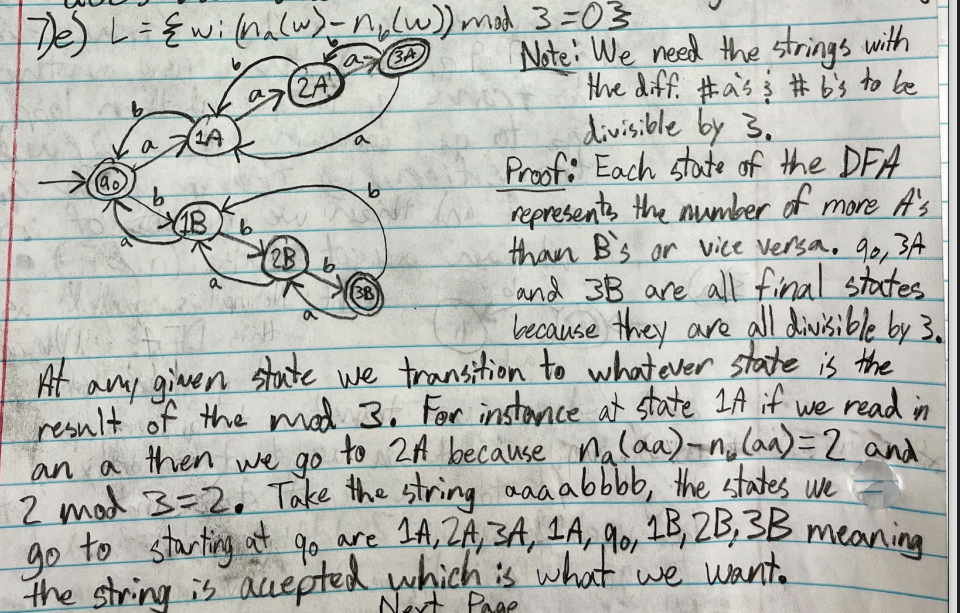 7)e) L = {w: (na(w) - nb(w)) mod 3 = 0}
Note: We need the strings with
the diff. #a's & # b's to be
divisible by 3.
Proof: Each state of the DFA
represents the number of more A's
than B's or vice versa. q0, 3A
and 3B are all final states
because they are all divisible by 3.
b
a
3A
b
a
2A
b
a
1A
a
q0
b
a
1B
b
b
a
2B
b
a
3B
At any given state we transition to whatever state is the
result of the mod 3. For instance at state 1A if we read in
an a then we go to 2A because na(aa)-nb(aa)=2 and
2 mod 3=2. Take the string aaaabbbb, the states we
go to starting at q0 are 1A, 2A, 3A, 1A, q0, 1B, 2B, 3B meaning
the string is accepted which is what we want.
Next Page